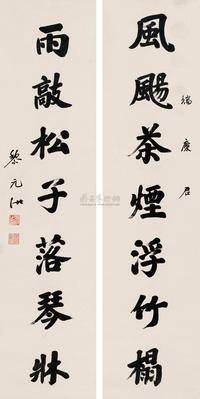 風颺茶煙浮竹榻
瑞庚君
雨敲松子落琴牀
黎元洪